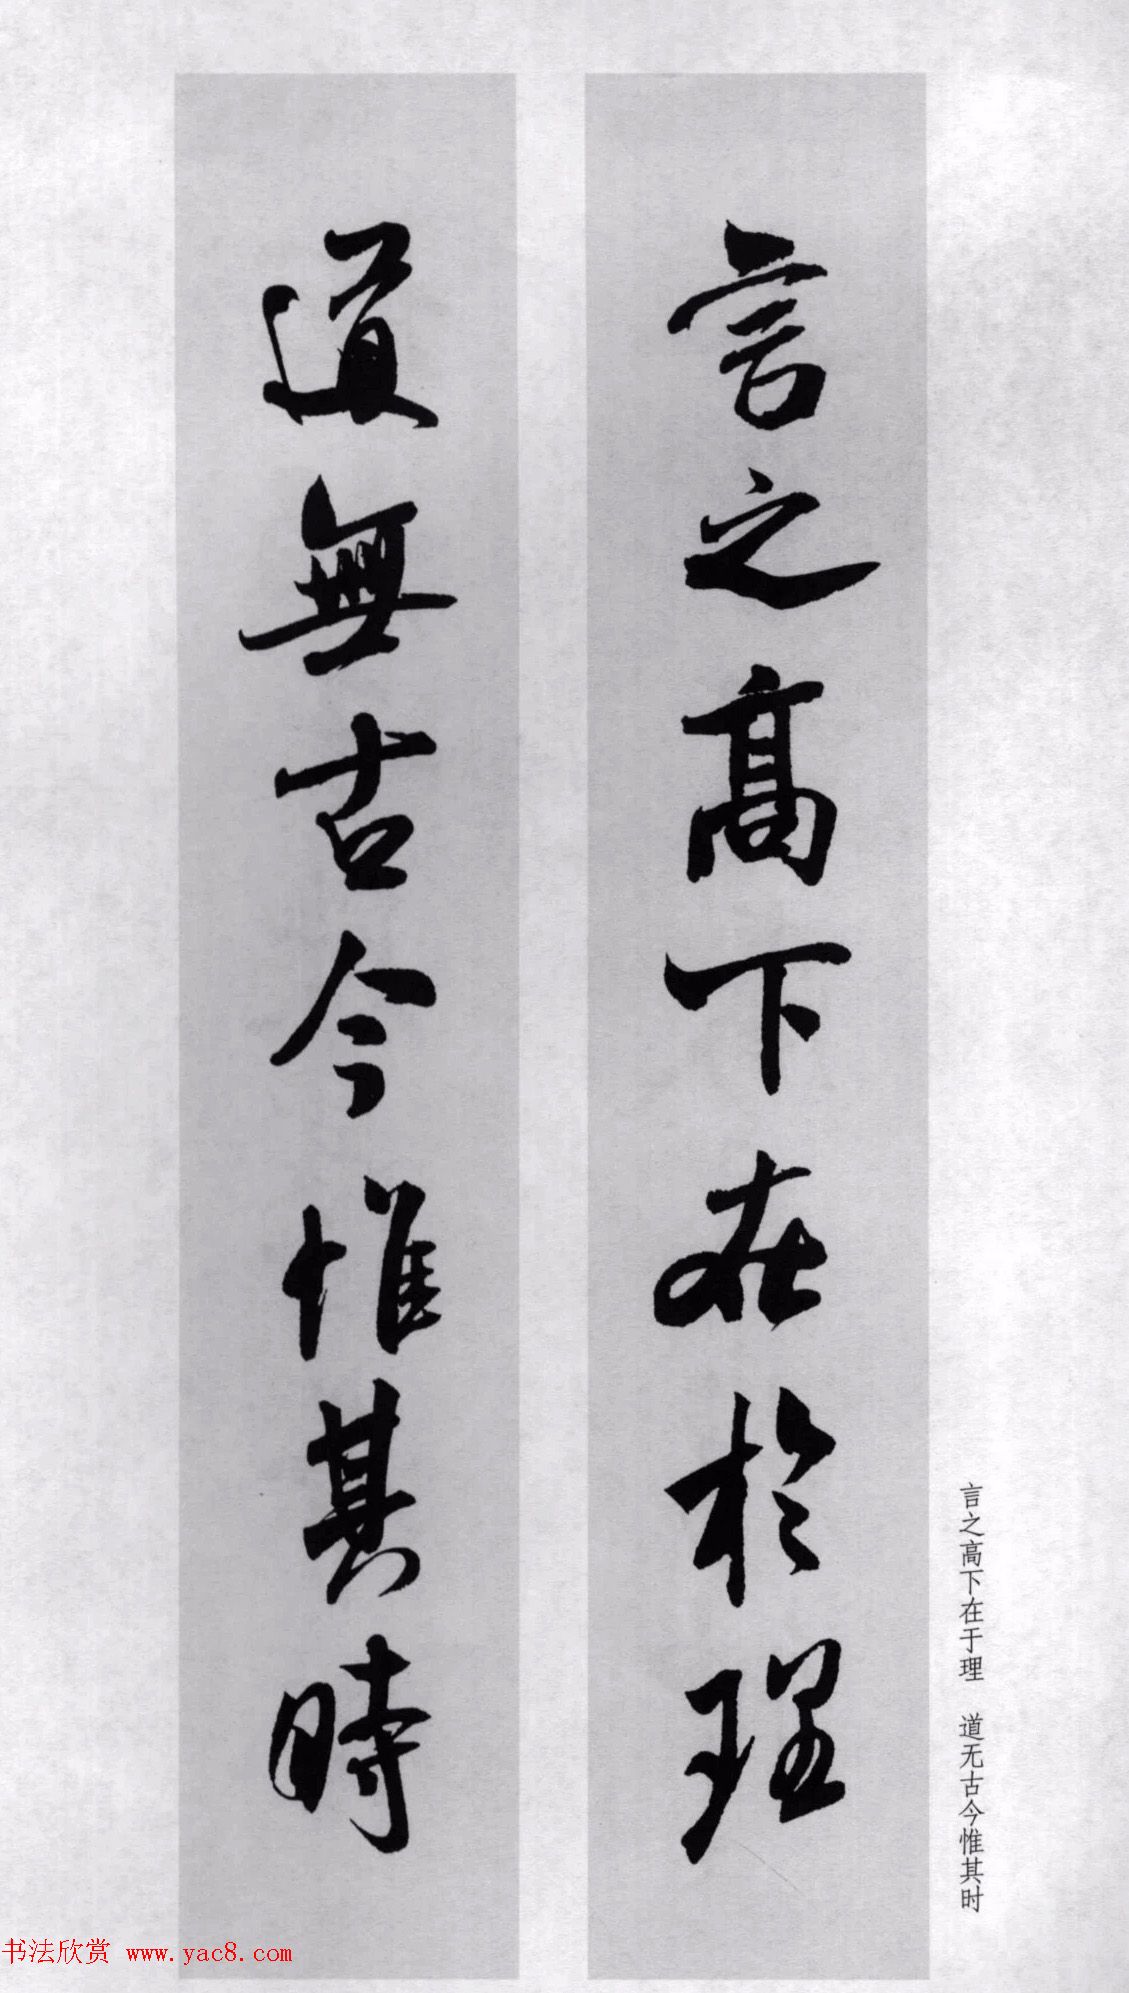 言之高下在於理
道無古今惟其時
言之高下在于理　道无古今惟其时
书法欣赏 www.yac8.com